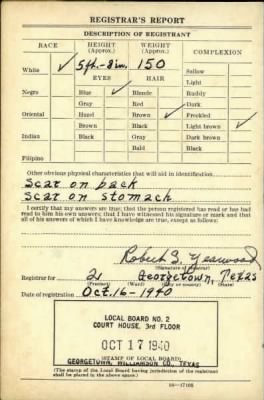 REGISTRAR'S REPORT
DESCRIPTION OF REGISTRANT
RACE HEIGHT (Approx.) WEIGHT (Approx.) COMPLEXION
White ✓ 5 ft.-8in. 150 Sallow
EYES HAIR Light
Negro Blue ✓ Blonde Ruddy
Gray Red Dark
Oriental Hazel Brown ✓ Freckled
Brown Black Light brown ✓
Indian Black Gray Dark brown
Bald Black
Filipino
Other obvious physical characteristics that will aid in identification
Scar on back
Scar on stomach
I certify that my answers are true; that the person registered has read or has had
read to him his own answers; that I have witnessed his signature or mark and that
all of his answers of which I have knowledge are true, except as follows:
Robert S. Yearwood
(Signature of registrar)
Registrar for 2 Georgetown, Texas
(Precinct) (Ward) (City or county) (State)
Date of registration Oct. 16-1940
LOCAL BOARD NO. 2
COURT HOUSE, 3rd FLOOR
OCT 17 1940
(STAMP OF LOCAL BOARD)
GEORGETOWN, WILLIAMSON CO., TEXAS
(The stamp of the Local Board having jurisdiction of the registrant
shall be placed in the above space.)
16—17105